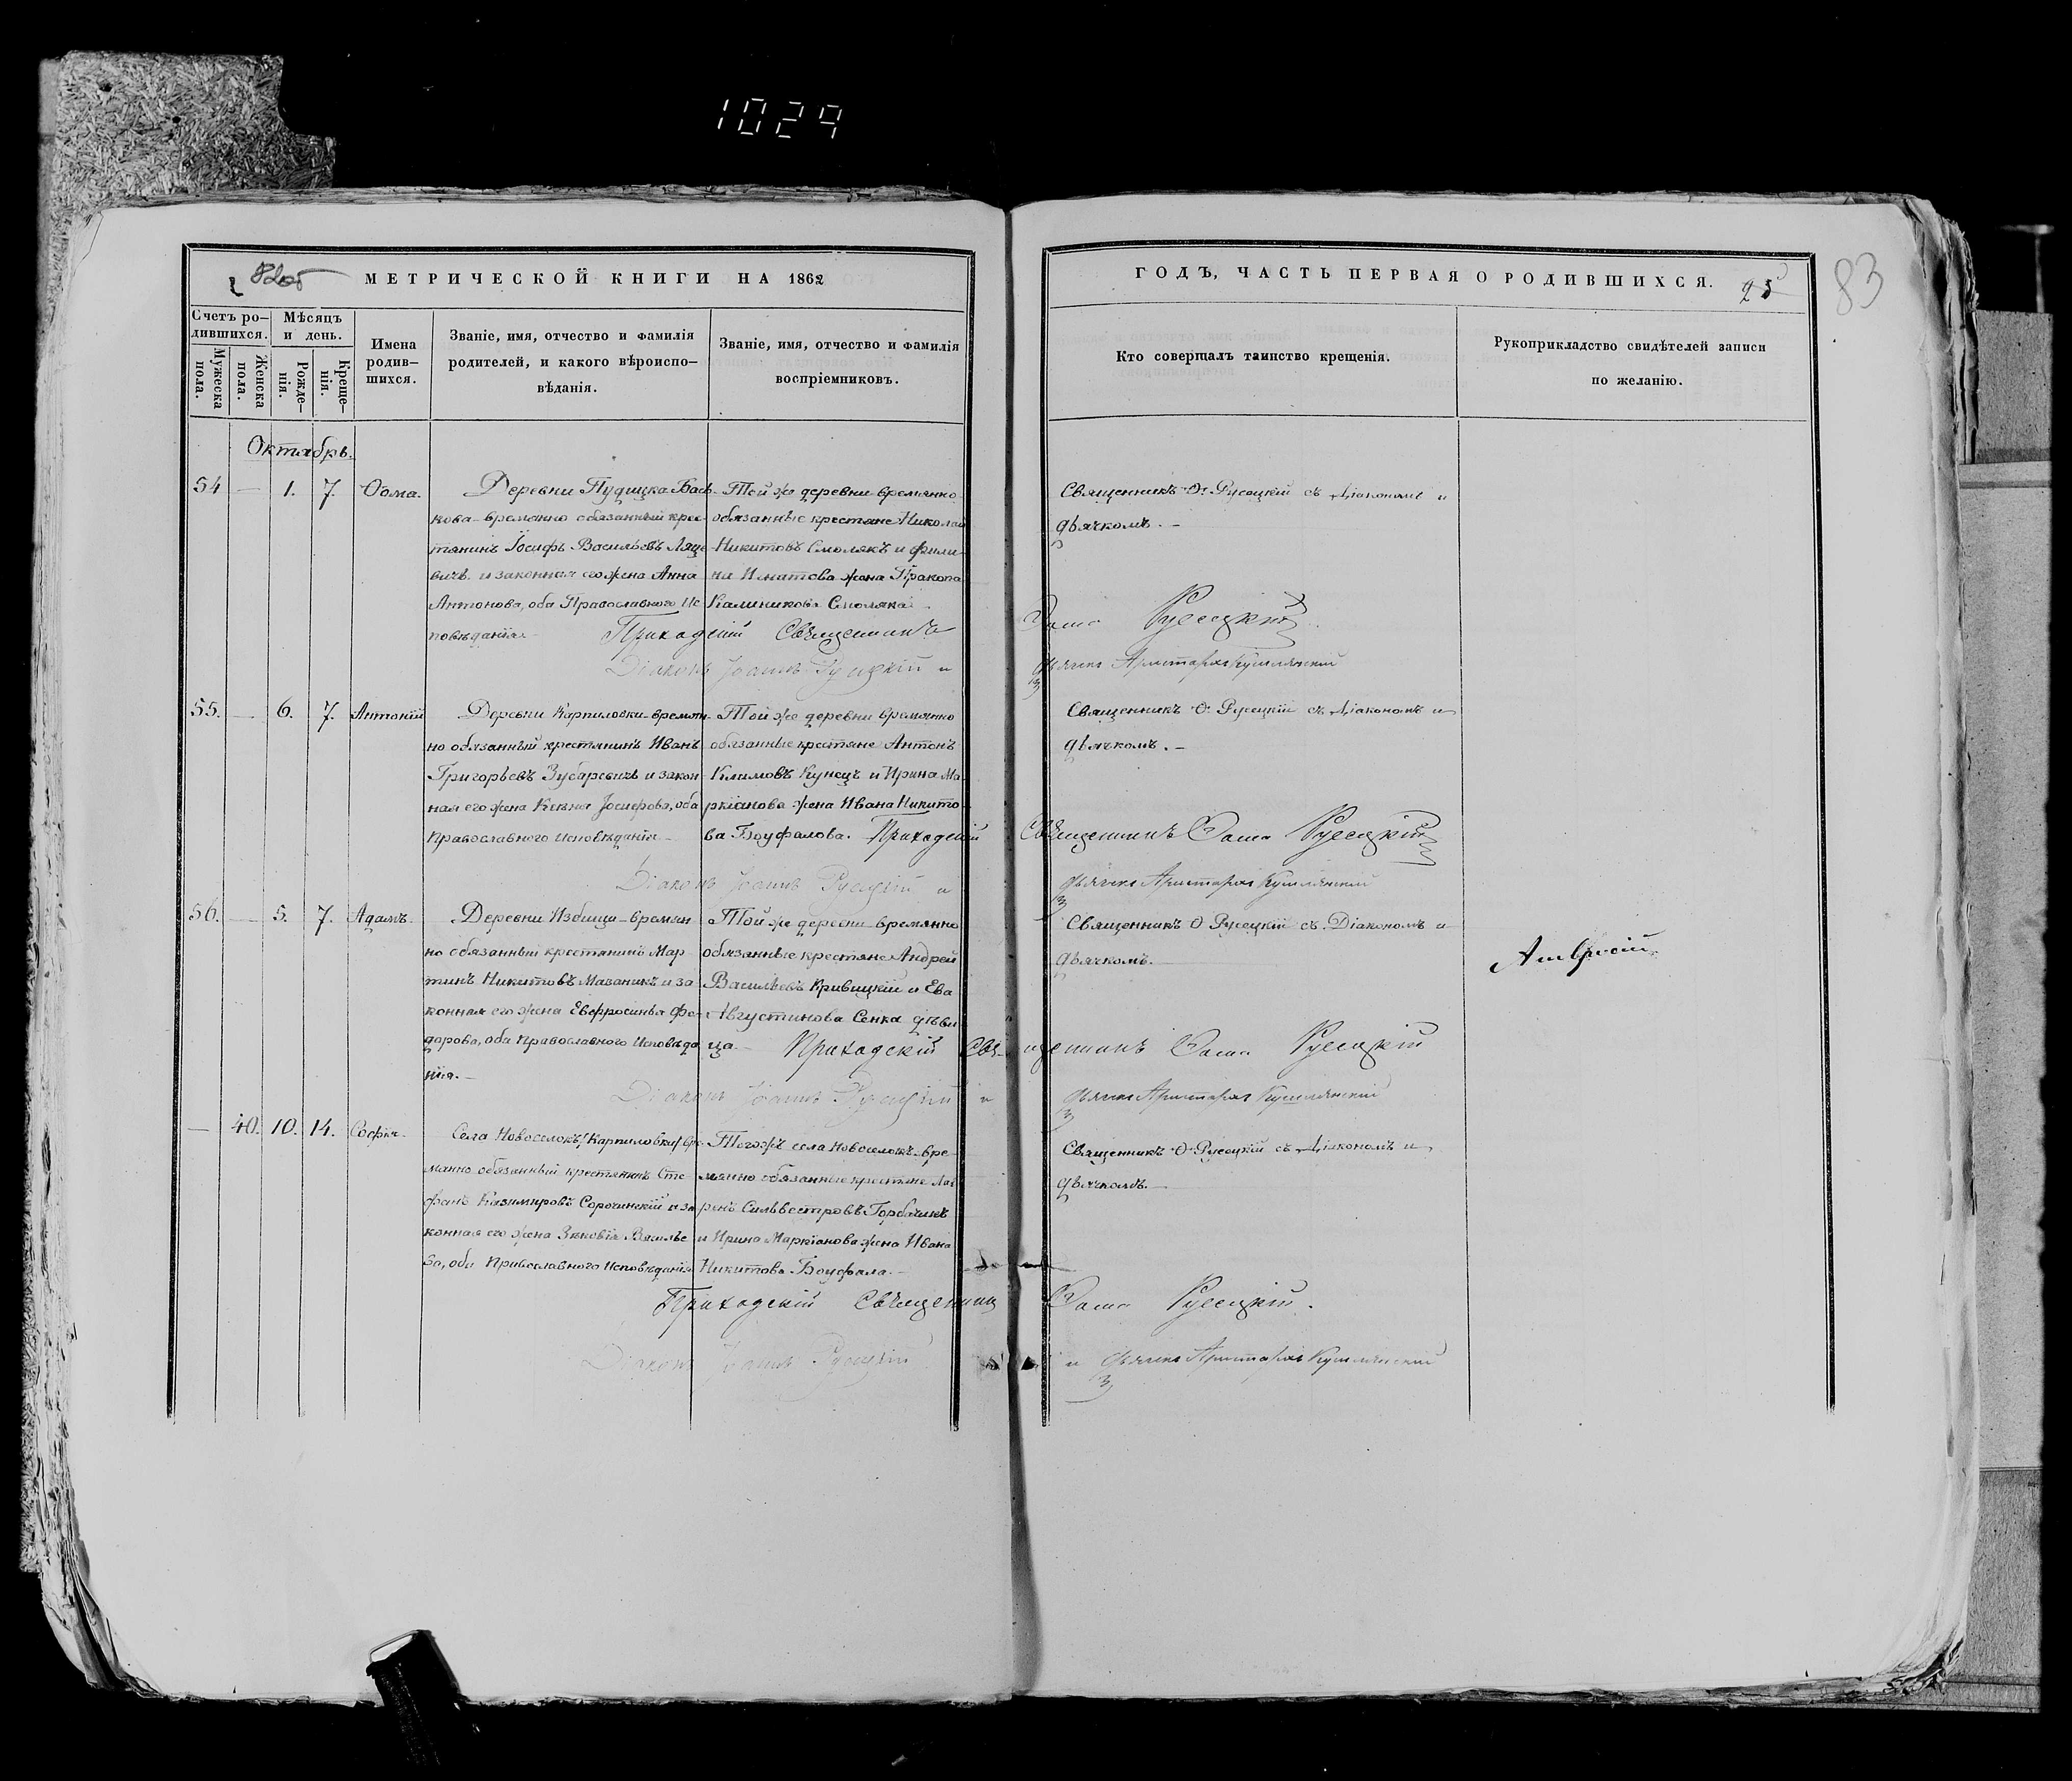 1029
МЕТРИЧЕСКОЙ КНИГИ НА 1862
ГОДЪ, ЧАСТЬ ПЕРВАЯ О РОДИВШИХСЯ.
25
83
Счетъ ро-
дившихся.
Мужеска
пола.
Женска
пола.
Мѣсяцъ
и день.
Рожде-
нія.
Креще-
нія.
Имена
родив-
шихся.
Званіе, имя, отчество и фамилія
родителей, и какого вѣроиспо-
вѣданія.
Званіе, имя, отчество и фамилія
воспріемниковъ.
Кто совершалъ таинство крещенія.
Рукоприкладство свидѣтелей записи
по желанію.
Октябрь.
54 — 1. 7. Ѳома.
Деревни Пудицка Бась
кова временно обязанный крес-
тянинъ Іосифъ Васильевъ Ляще
вичъ и законная его жена Анна
Антонова, оба Православного Ис
повѣданія.
Той же деревни временно
обязанные крестяне Николай
Никитовъ Смолякъ и Фили-
на Игнатова жена Пракопа
Калиникова Смоляка.
Священникъ Ѳ. Русецкій съ Діакономъ и
дьячкомъ. —
Приходскій Священникъ Ѳома Русецкій
Діаконъ Іоаннъ Русецкій и
дьячекъ Аристархъ Кушлянскій
55. — 6. 7. Антоній
Деревни Карпиловки времен-
но обязанный крестянинъ Иванъ
Григорьевъ Зубаревичъ и закон-
ная его жена Ксенія Іосифова, оба
Православного Исповѣданія
Той же деревни временно
обязанные крестяне Антонъ
Климовъ Кунецъ и Ирина Ма-
ркіанова жена Ивана Никито-
ва Боуфалова.
Священникъ Ѳ. Русецкій съ Діакономъ и
дьячкомъ. —
Приходскій Священникъ Ѳома Русецкій
Діаконъ Іоаннъ Русецкій и
дьячекъ Аристархъ Кушлянскій
56. — 5. 7. Адамъ.
Деревни Избищи времен
но обязанный крестянинъ Мар-
тинъ Никитовъ Мазаникъ и за
конная его жена Евфросинья Фе-
дорова, оба Православного Исповѣда
нія. —
Той же деревни временно
обязанные крестяне Андрей
Васильевъ Кривицкій и Ева
Августинова Сенка дѣви
ца.
Священникъ Ѳ Русецкій съ Діакономъ и
дьячкомъ. —
Амвросій
Приходскій Священникъ Ѳома Русецкій
Діаконъ Іоаннъ Русецкій и
дьячекъ Аристархъ Кушлянскій
— 40. 10. 14. Софія.
Села Новоселокъ /Карпиловки/ вре-
манно обязанный крестянинъ Сте
фанъ Казимировъ Сорочинскій и за
конная его жена Зѣновія Василье
ва, оба Православного Исповѣданія
Тогожъ села Новоселокъ вре-
менно обязанные крестяне Лав
ринъ Сильвестровъ Горбачикъ
и Ирина Маркіанова жена Ивана
Никитова Боуфала. —
Священникъ Ѳ. Русецкій съ Діакономъ и
дьячкомъ. —
Приходскій Священник Ѳома Русецкій.
Діаконъ Іоаннъ Русецкій
и дьячекъ Аристархъ Кушлянскій